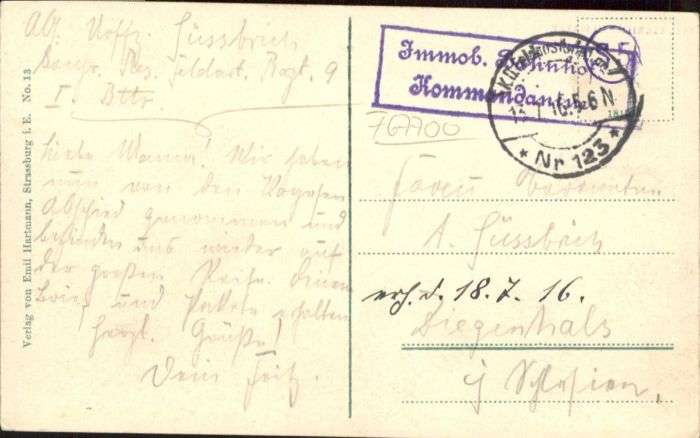 Abs. Uoffz. Süssbrich
Bayr. Res. Feldart. Regt. 9
I. Bttr.
Liebe Mama! Wir haben
nun von den Vogesen
Abschied genommen und
befinden uns wieder auf
der großen Reise. Deinen
Brief und Pakete erhalten
Herzl. Grüße!
Dein Fritz.
Verlag von Emil Hartmann, Strassburg i. E. No. 13
Immob. Bahnhof
Kommandantur
5-6 N
* Nr 123 *
767700
Frau
A. Süssbrich
erh. d. 18. 7. 16.
Ziegenhals
i/ Schlesien.